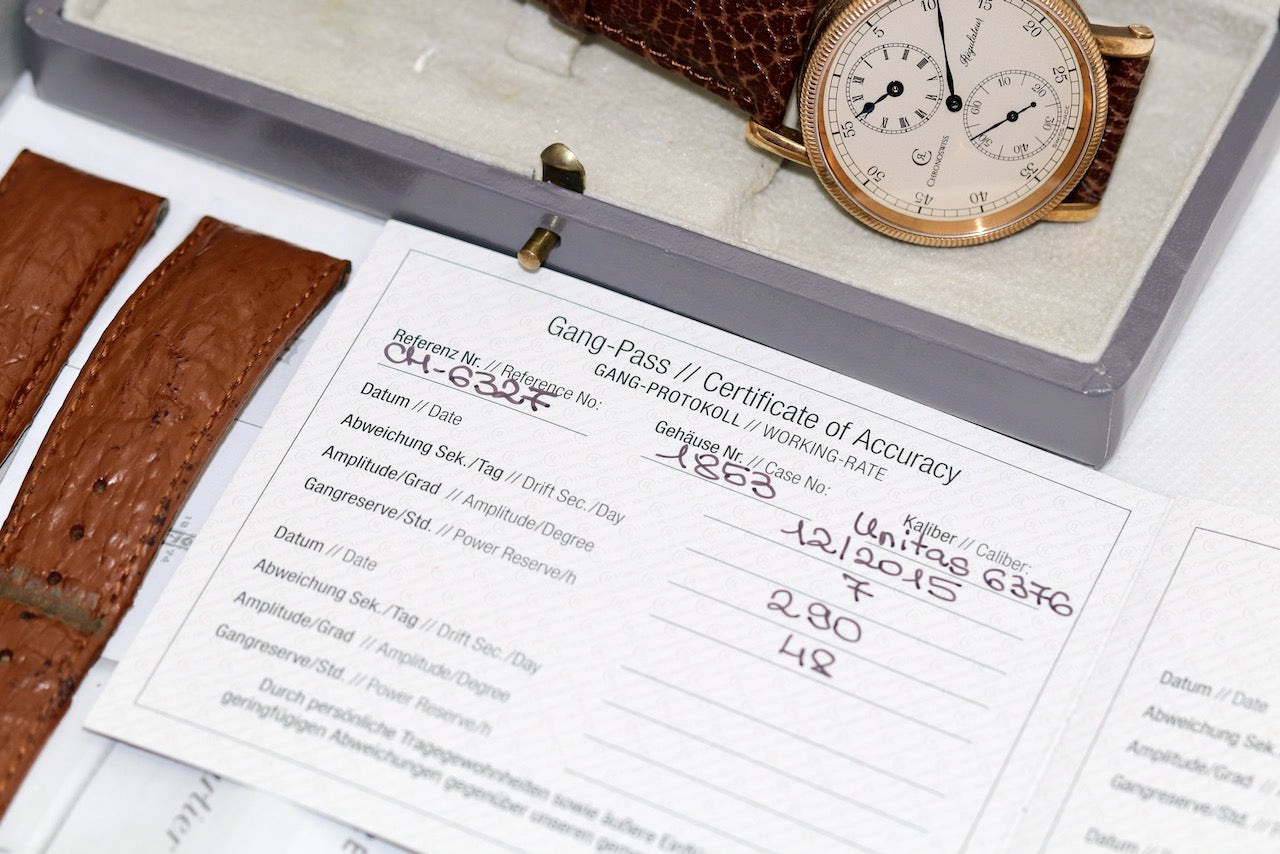 5
10
15
20
25
35
40
45
50
55
Regulateur
60
10
20
30
40
50
CHRONOSWISS
SWISS MADE
Gang-Pass // Certificate of Accuracy
GANG-PROTOKOLL // WORKING-RATE
Referenz Nr. // Reference No:
CH-6327
Gehäuse Nr. // Case No:
1853
Kaliber // Caliber:
Unitas 6376
Datum // Date
12/2015
Abweichung Sek./Tag // Drift Sec./Day
7
Amplitude/Grad // Amplitude/Degree
290
Gangreserve/Std. // Power Reserve/h
48
Datum // Date
Abweichung Sek./Tag // Drift Sec./Day
Amplitude/Grad // Amplitude/Degree
Gangreserve/Std. // Power Reserve/h
Durch persönliche Tragegewohnheiten sowie äußere
geringfügigen Abweichungen gegenüber unseren
Datum // Date
Abweichung Sek.
Amplitude/Grad //
Gangreserve/Std. //
Datum //